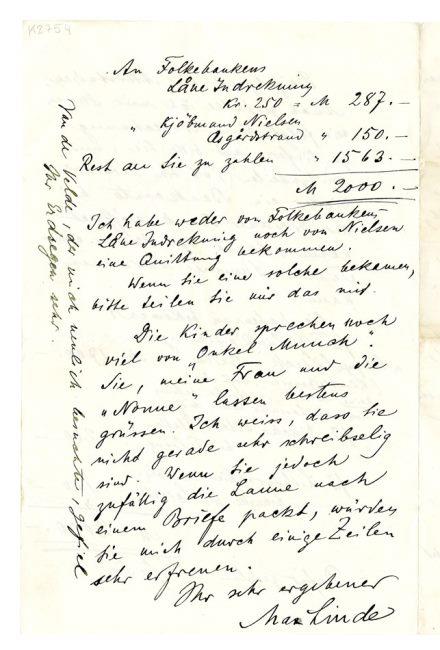 K2754
An Folkebankens
Låne Indretning
Kr. 250 = M 287.—
" Kjöbmand Nielsen
Åsgårdstrand " 150.—
Rest an Sie zu zahlen " 1563.—
M 2000.—
Ich habe weder von Folkebankens
Låne Indretning noch von Nielsen
eine Quittung bekommen.
Wenn sie eine solche bekamen,
bitte teilen Sie mir das mit.
Die Kinder sprechen noch
viel von "Onkel Munch".
Sie, meine Frau und die
"Nonne" lassen bestens
grüssen. Ich weiss, dass Sie
nicht gerade sehr schreibselig
sind. Wenn Sie jedoch
zufällig die Laune nach
einem Briefe packt, würden
Sie mich durch einige Zeilen
sehr erfreuen.
Ihr sehr ergebener
Max Linde
Van de Velde, der mich neulich besuchte, gefiel
sehr.